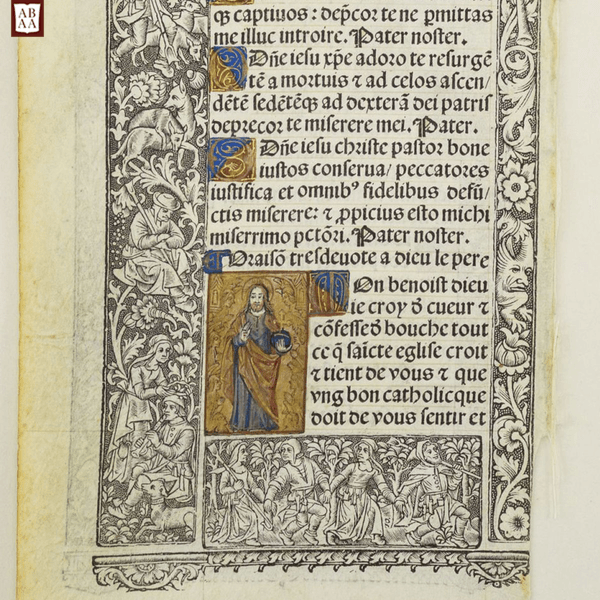 AB
AA
q̃ captiuos : dep̃cor te ne p̱mittas
me illuc introire. Pater noster.
Dñe iesu xp̃e adoro te resurgē
tē a mortuis ⁊ ad celos ascen/
dētē sedētēq̃ ad dexterā dei patris
deprecor te miserere mei. Pater.
Dñe iesu christe pastor bone
iustos conserua/ peccatores
iustifica et omnibꝰ fidelibus defū/
ctis miserere: ⁊ ꝓpicius esto michi
miserrimo pctōri. Pater noster.
Oraisō tresdeuote a dieu le pere
Mon benoist dieu
ie croy d̄ cueur ⁊
cōfesse d̄ bouche tout
ce q̄ saīcte eglise croit
⁊ tient de vous ⁊ que
vng bon catholicque
doit de vous sentir et